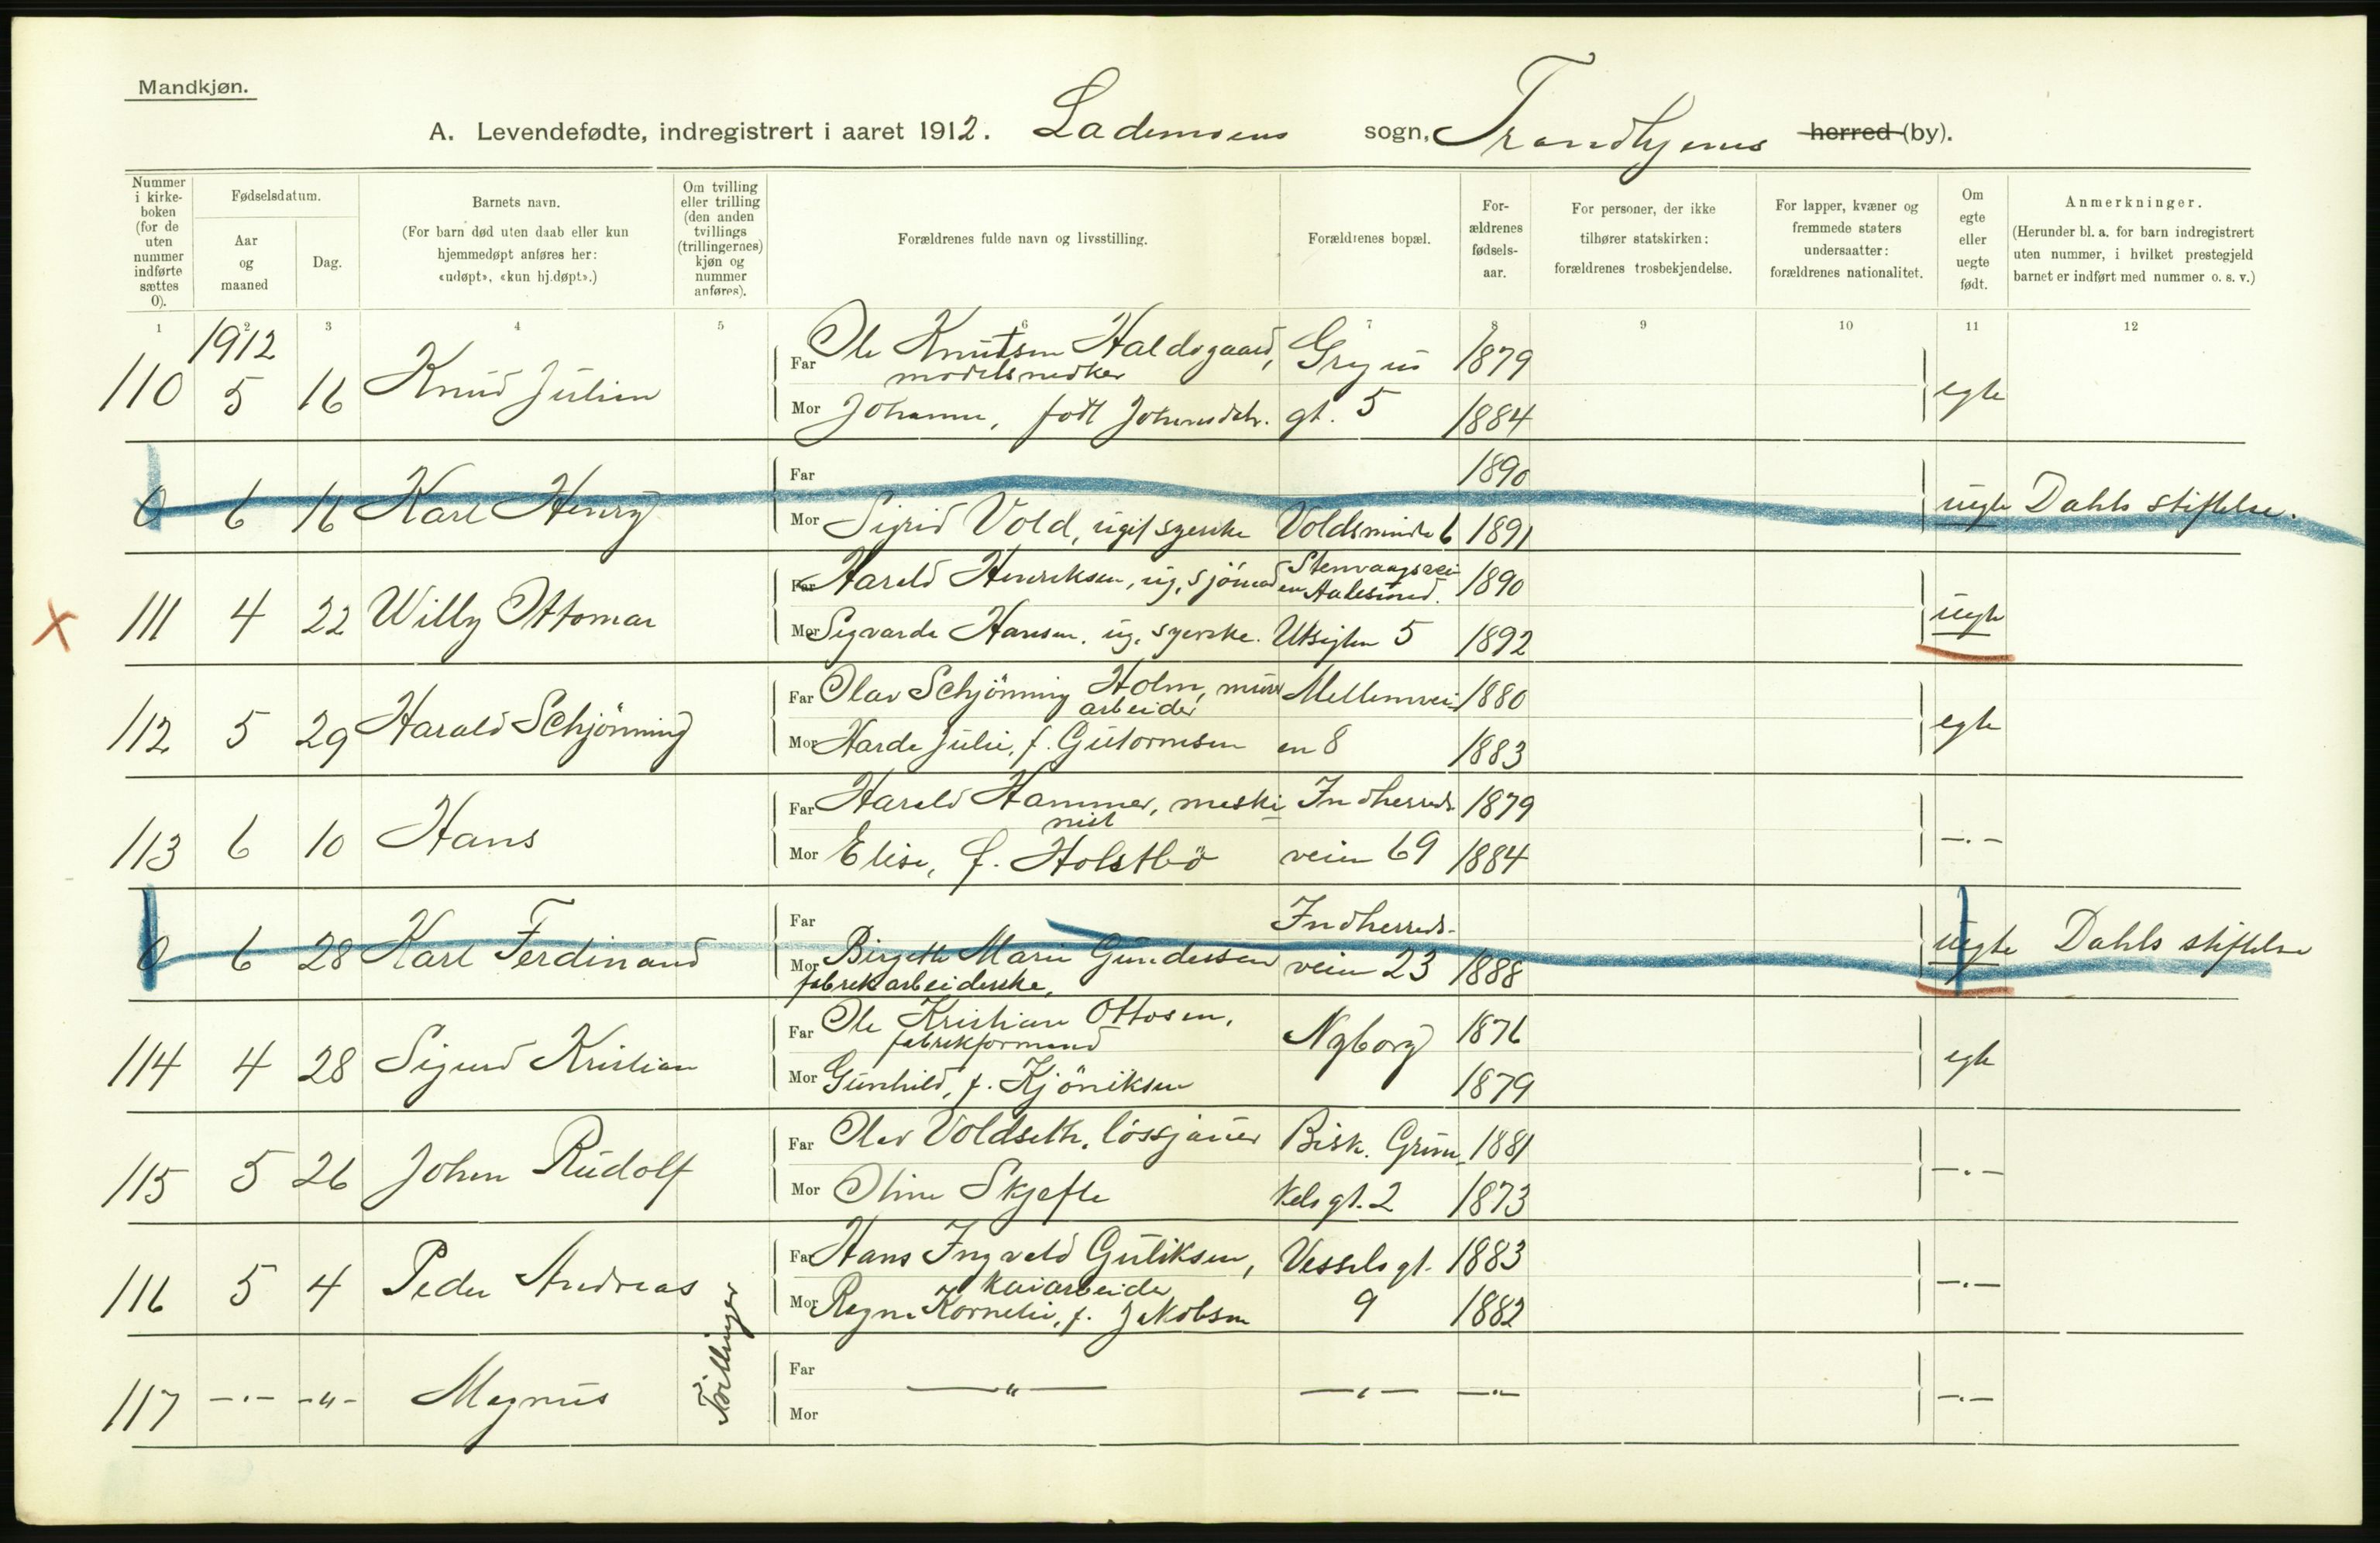 Mandkjøn.
A. Levendefødte, indregistrert i aaret 1912. Lademoens sogn, Trondhjems herred (by).
Nummer i kirke-boken (for de uten nummer indførte sættes 0).
Fødselsdatum.
Aar og maaned
Dag.
Barnets navn.
(For barn død uten daab eller kun hjemmedøpt anføres her: «udøpt», «kun hj.døpt».)
Om tvilling eller trilling (den anden tvillings (trillingernes) kjøn og nummer anføres).
Forældrenes fulde navn og livsstilling.
Forældrenes bopæl.
For-ældrenes fødsels-aar.
For personer, der ikke tilhører statskirken: forældrenes trosbekjendelse.
For lapper, kvæner og fremmede staters undersaatter: forældrenes nationalitet.
Om egte eller uegte født.
Anmerkninger.
(Herunder bl. a. for barn indregistrert uten nummer, i hvilket prestegjeld barnet er indført med nummer o. s. v.)
1 2 3 4 5 6 7 8 9 10 11 12
1912
110 5 16 Knud Julian Far Ole Knutsen Haldsgaard, modelsnedker Gryus 1879 egte
Mor Johanne, født Johansdatr. gt. 5 1884
0 6 16 Karl Henry Far 1890 uegte Dahls stiftelse.
Mor Sigrid Vold, ugift syerske Voldsminde 6 1891
X 111 4 22 Willy Ottomar Far Harald Henriksen, ug, sjömand Stenvaagsveien Aalesund. 1890 uegte
Mor Sigvarda Hansen, ug. syerske. Utsigten 5 1892
112 5 29 Harald Schjönning Far Olav Schjönning Holm, murarbeider Mellemvei- 1880 egte
Mor Harda Julie, f. Gutormsen en 8 1883
113 6 10 Hans Far Harald Hammer, maskinist Indherreds- 1879 —„—
Mor Elise, f. Holstbö veien 69 1884
0 6 28 Karl Ferdinand Far Indherreds- uegte Dahls stiftelse
Mor Birgette Marie Gundersen fabrikarbeiderske. veien 23 1888
114 4 28 Sigurd Kristian Far Ole Kristian Ottosen, fabrikformand Nyborg 1876 egte
Mor Gunhild, f. Kjöniksen 1879
115 5 26 Johan Rudolf Far Olav Voldseth, lössjauer Bisk. Grim- 1881 —„—
Mor Oline Skjefte kels gt. 2 1873
116 5 4 Peder Andreas Tvillinger Far Hans Ingvald Guliksen, kaiarbeider Vessels gt. 1883 —„—
Mor Ragna Kornelie, f. Jakobsen 9 1882
117 —„— —„— Magnus Far —„— —„— —„— —„—
Mor